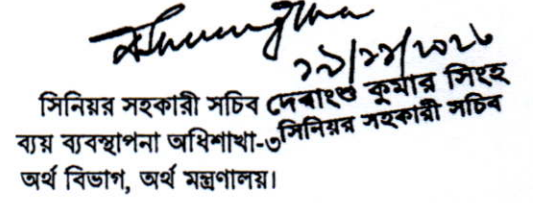 ২৯/১১/২০২৩
সিনিয়র সহকারী সচিব
দেবাংশু কুমার সিংহ
ব্যয় ব্যবস্থাপনা অধিশাখা-৩
সিনিয়র সহকারী সচিব
অর্থ বিভাগ, অর্থ মন্ত্রণালয়।